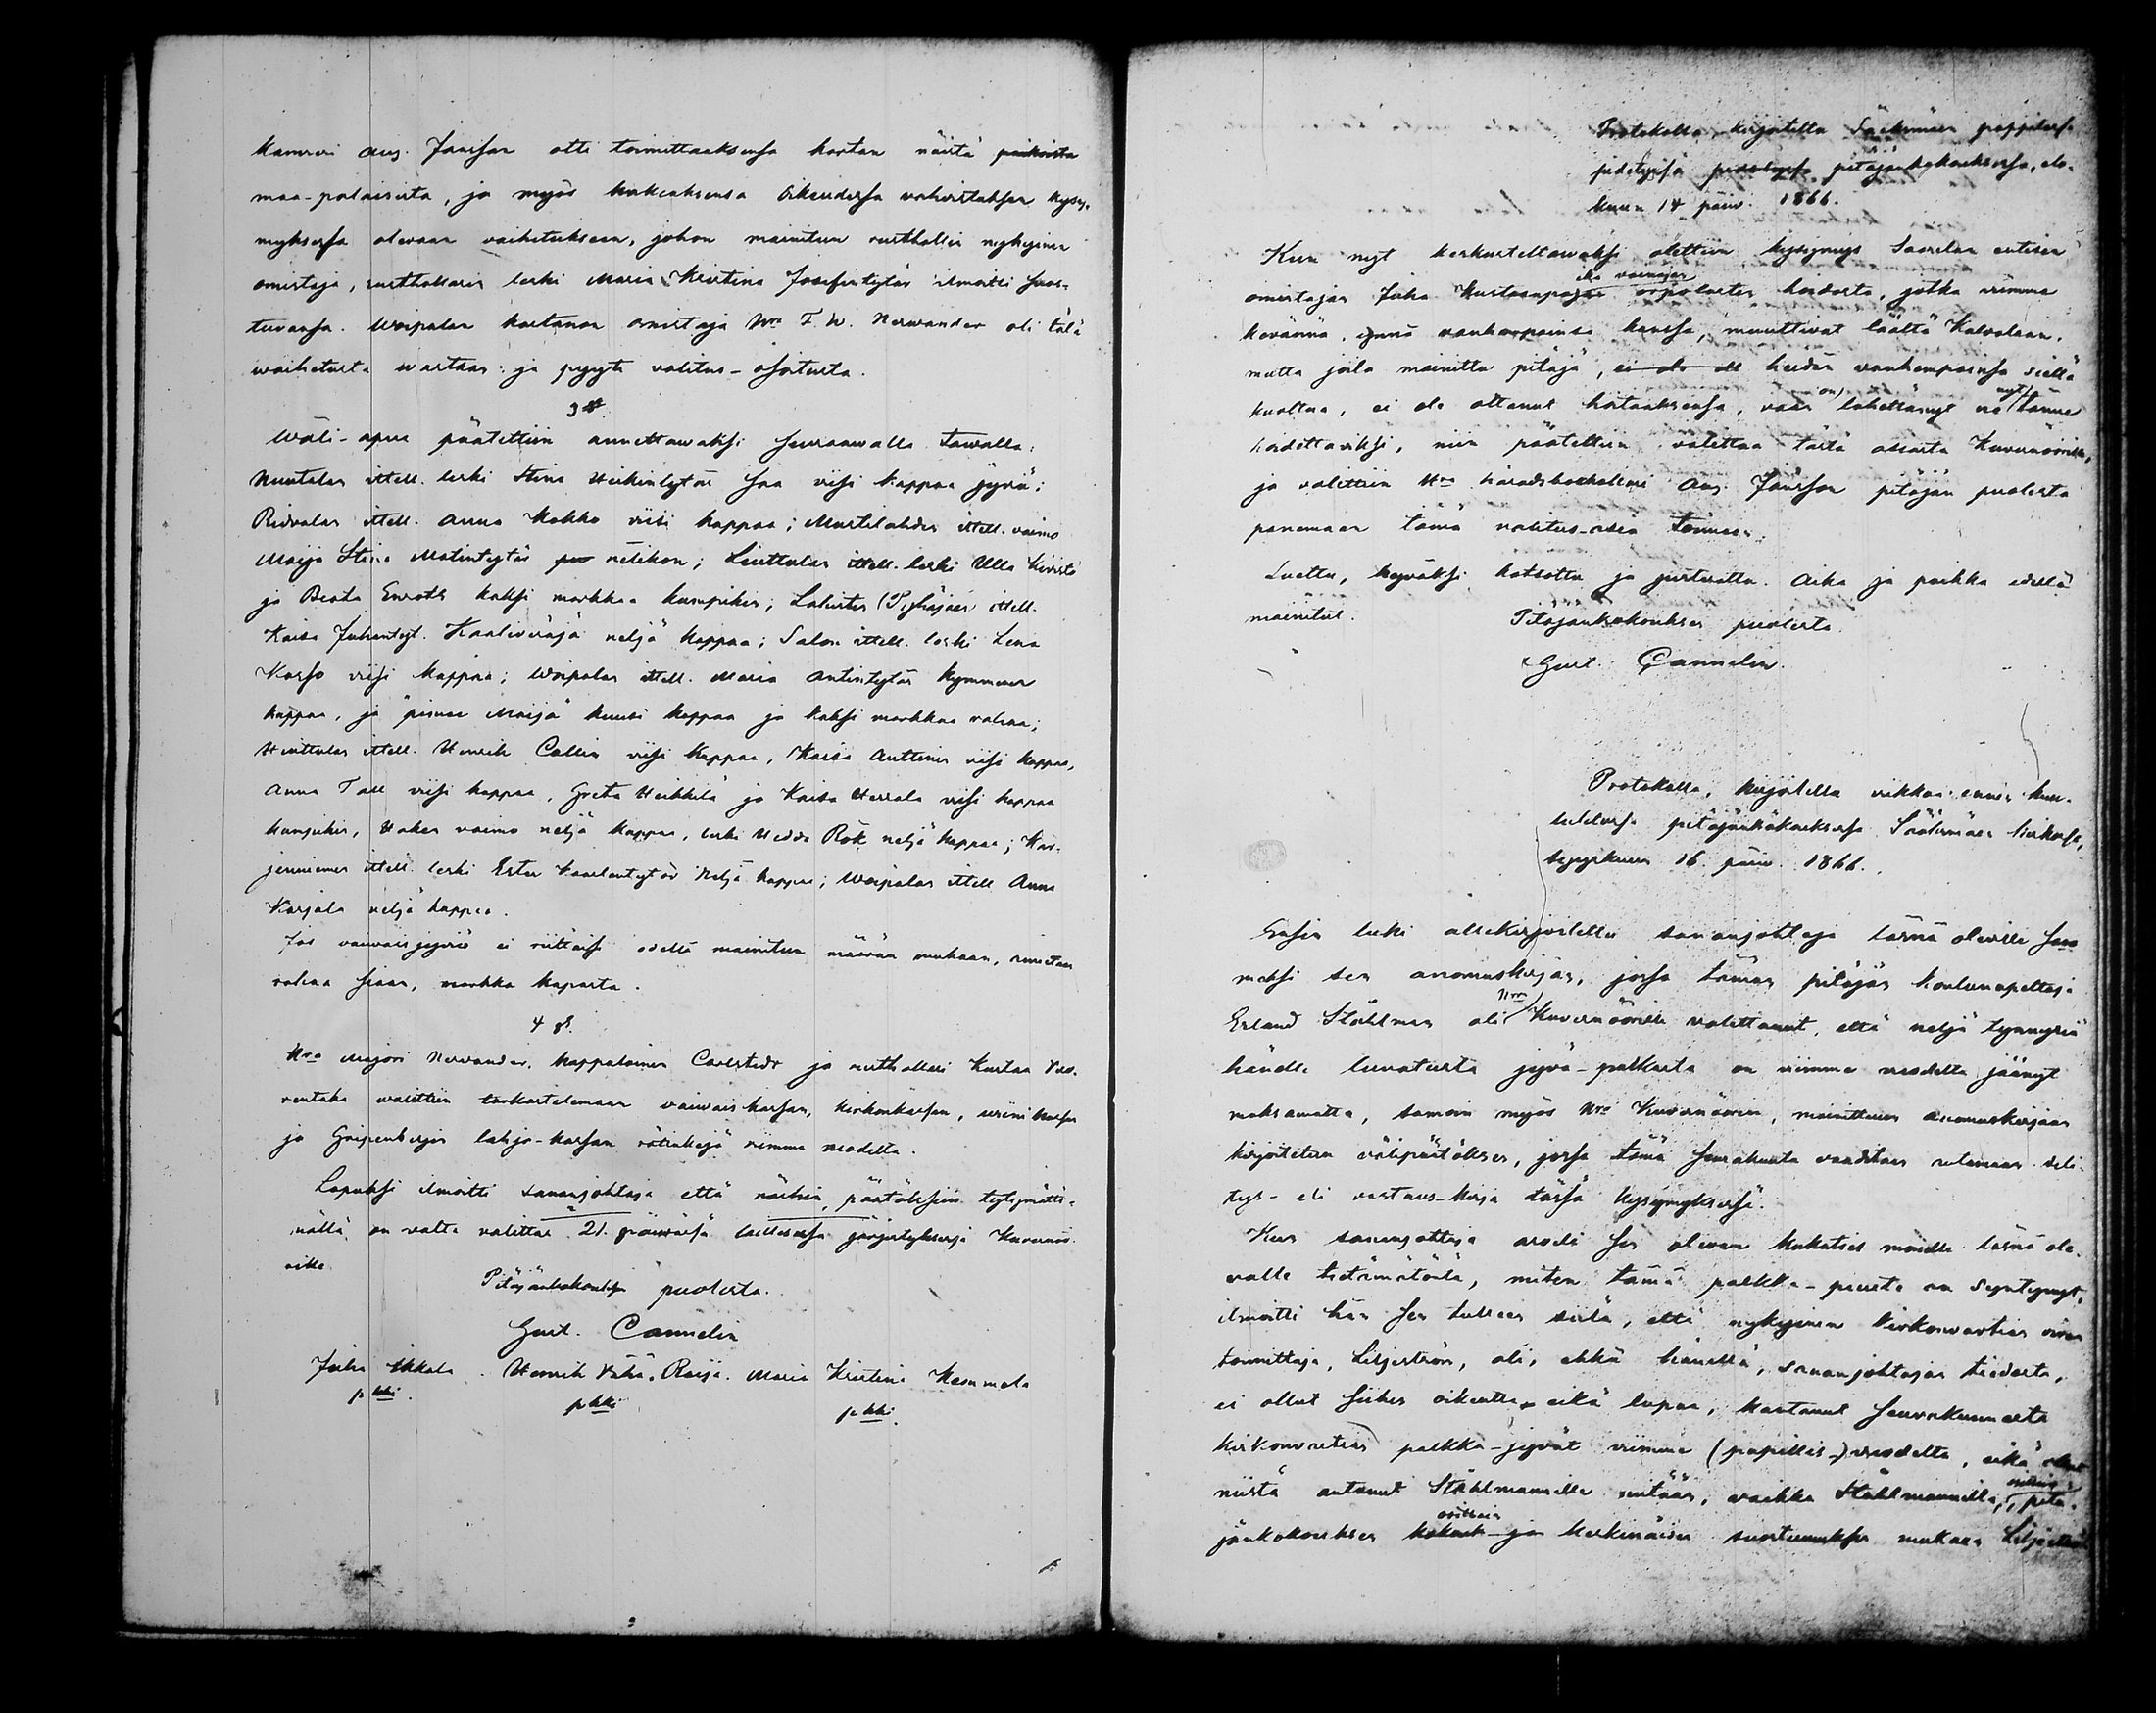 Kamreri Aug. Jansson otti toimittaaksensa kartan näistä paikoista
maa-palaisista, ja myös hakeaksensa oikeudessa vahvistuksen kysy-
myksessä olevaan vaihetukseen, johon mainitun rusthollin nykyinen
omistaja, rusthollarin leski Maria Kristina Josefintytär ilmoitti suos-
tuvansa. Woipalan kartanon omistaja Hra F. W. Nerwander oli tätä
waihetusta wastaan: ja pyyti valitus-osoitusta.
3 §.
Wäli-apua päätettiin annettawaksi seuraawalla tawalla:
Huntalan ittell. leski Stina Heikintytär saa viisi kappaa jyviä;
Ridvalan ittell. Anna Kokko viisi kappaa; Muntilahden ittell. vaimo
Maija Stina Matintytär nelikon; Liuttulan ittell. leski Ulla Kivistö
ja Beata Enroth kaksi markkaa kumpikin; Lahisten ittell.
Kaisa Juhantyt. neljä kappaa; Salon ittell. leski Lena
Karso viisi kappaa; Woipalan ittell. Maria Antintytär kymmenen
kappaa, ja "pienne Maija" kuusi kappaa ja kaksi markkaa rahaa;
Huittulan ittell. Henrik Callin viisi kappaa, Kaisa Anttinen viisi kappaa,
Anna Tall viisi kappaa, Greta Heikkilä ja Kaisa Herrala viisi kappaa
kumpikin, Haken vaimo neljä kappaa, leski Hedda Rök neljä kappaa; Kar-
jenniemen ittell. leski Ester Kaarlentytär neljä kappaa; Woipalan ittell Anna
Karjala neljä kappaa.
Jos vaivaisjyviä ei riittäisi edellä mainitun määrän mukaan, annetaan
rahaa siaan, markka kapasta.
4 §.
Hra Majori Nerwander, kappalainen Carlstedt ja rusthollari Kustaa
valittiin tarkastelemaan vaivaiskassan, kirkonkassan, viini kassan
ja Gripenbergin lahja-kassan rätinkejä viimme vuodelta.
Lopuksi ilmoitti sananjohtaja että näihin päätöksiin tytymättö-
mällä on valta valittaa 21. päiwässä laillisessa järjestyksessä Kuvernöö-
rille.
Pitäjänkokouksen puolesta.
Gust. Cannelin
Juha Ikkala. Henrik Vähä-Raija. Maria Kristina
p kki. p kki p kki.
Protokolla, kirjoitettu Sääksmäen pappilassa
pidetyssä pitäjänkokouksessa, elo-
kuun 14 päiv. 1866.
Kun nyt keskusteltawaksi otettiin kysymys Saarelan entisen
omistajan Juha Kustaanpojan orpolasten hoidosta, jotka viimme
keväänä, ynnä vanhempainsa kanssa, muuttivat täältä Kalvolaan,
mutta joita mainittu pitäjä, heidän vanhempainsa siellä
kuoltua, ei ole ottanut hoitaaksensa, vaan on lähettänyt ne nyt tänne
hoidettaviksi, niin päätettiin valittaa tästä asiasta Kuvernöörille,
ja valittiin Hra häradsbokhollari Aug. Jansson pitäjän puolesta
panemaan tämä valitus-asia toimeen.
Luettu, hyväksi katsottu ja justeerattu. Aika ja paikka edellä
mainitut.
Pitäjänkokouksen puolesta.
Gust. Cannelin.
Protokolla, kirjoitettu viikkoa ennen kuu-
lutetussa pitäjänkokouksessa Sääksmäen kirkossa,
syyskuun 16. päiv. 1866.
Ensin luki allekirjoitettu sananjohtaja läsnä oleville
maksi sen anomuskirjan, jossa tämän pitäjän koulunopettaja
Erland Ståhlman oli Hra Kuvernöörille valittanut, että neljä tynnyriä
hänelle luvatusta jyvä-palkasta on viimme vuodelta jäänyt
maksamatta, samoin myös Hra Kuvernöörin, mainittuun anomuskirjaan
kirjoitetun välipäätöksen, jossa tämä seurakunta vaaditaan antamaan seli-
tys- eli vastaus-kirja tässä kysymyksessä.
Kun sananjohtaja arveli sen olevan kukaties monelle läsnä ole-
valle tietämätöintä, miten tämä palkka-puute on syntynyt,
ilmoitti hän sen tulleen siitä, että nykyinen kirkonvartian viran
toimittaja, Liljeström, oli, ehkä hänellä, sananjohtajan tiedosta,
ei ollut siihen oikeutta, eikä lupaa, kantanut seurakunnasta
kirkonvartian palkka-jyvät viimme (papillis-)vuodelta, eikä ollut
niistä antanut Ståhlmannille mitään, vaikka Ståhlmannilla, pitä-
jänkokouksen ja keskinäisen suostumuksen mukaan Liljeström